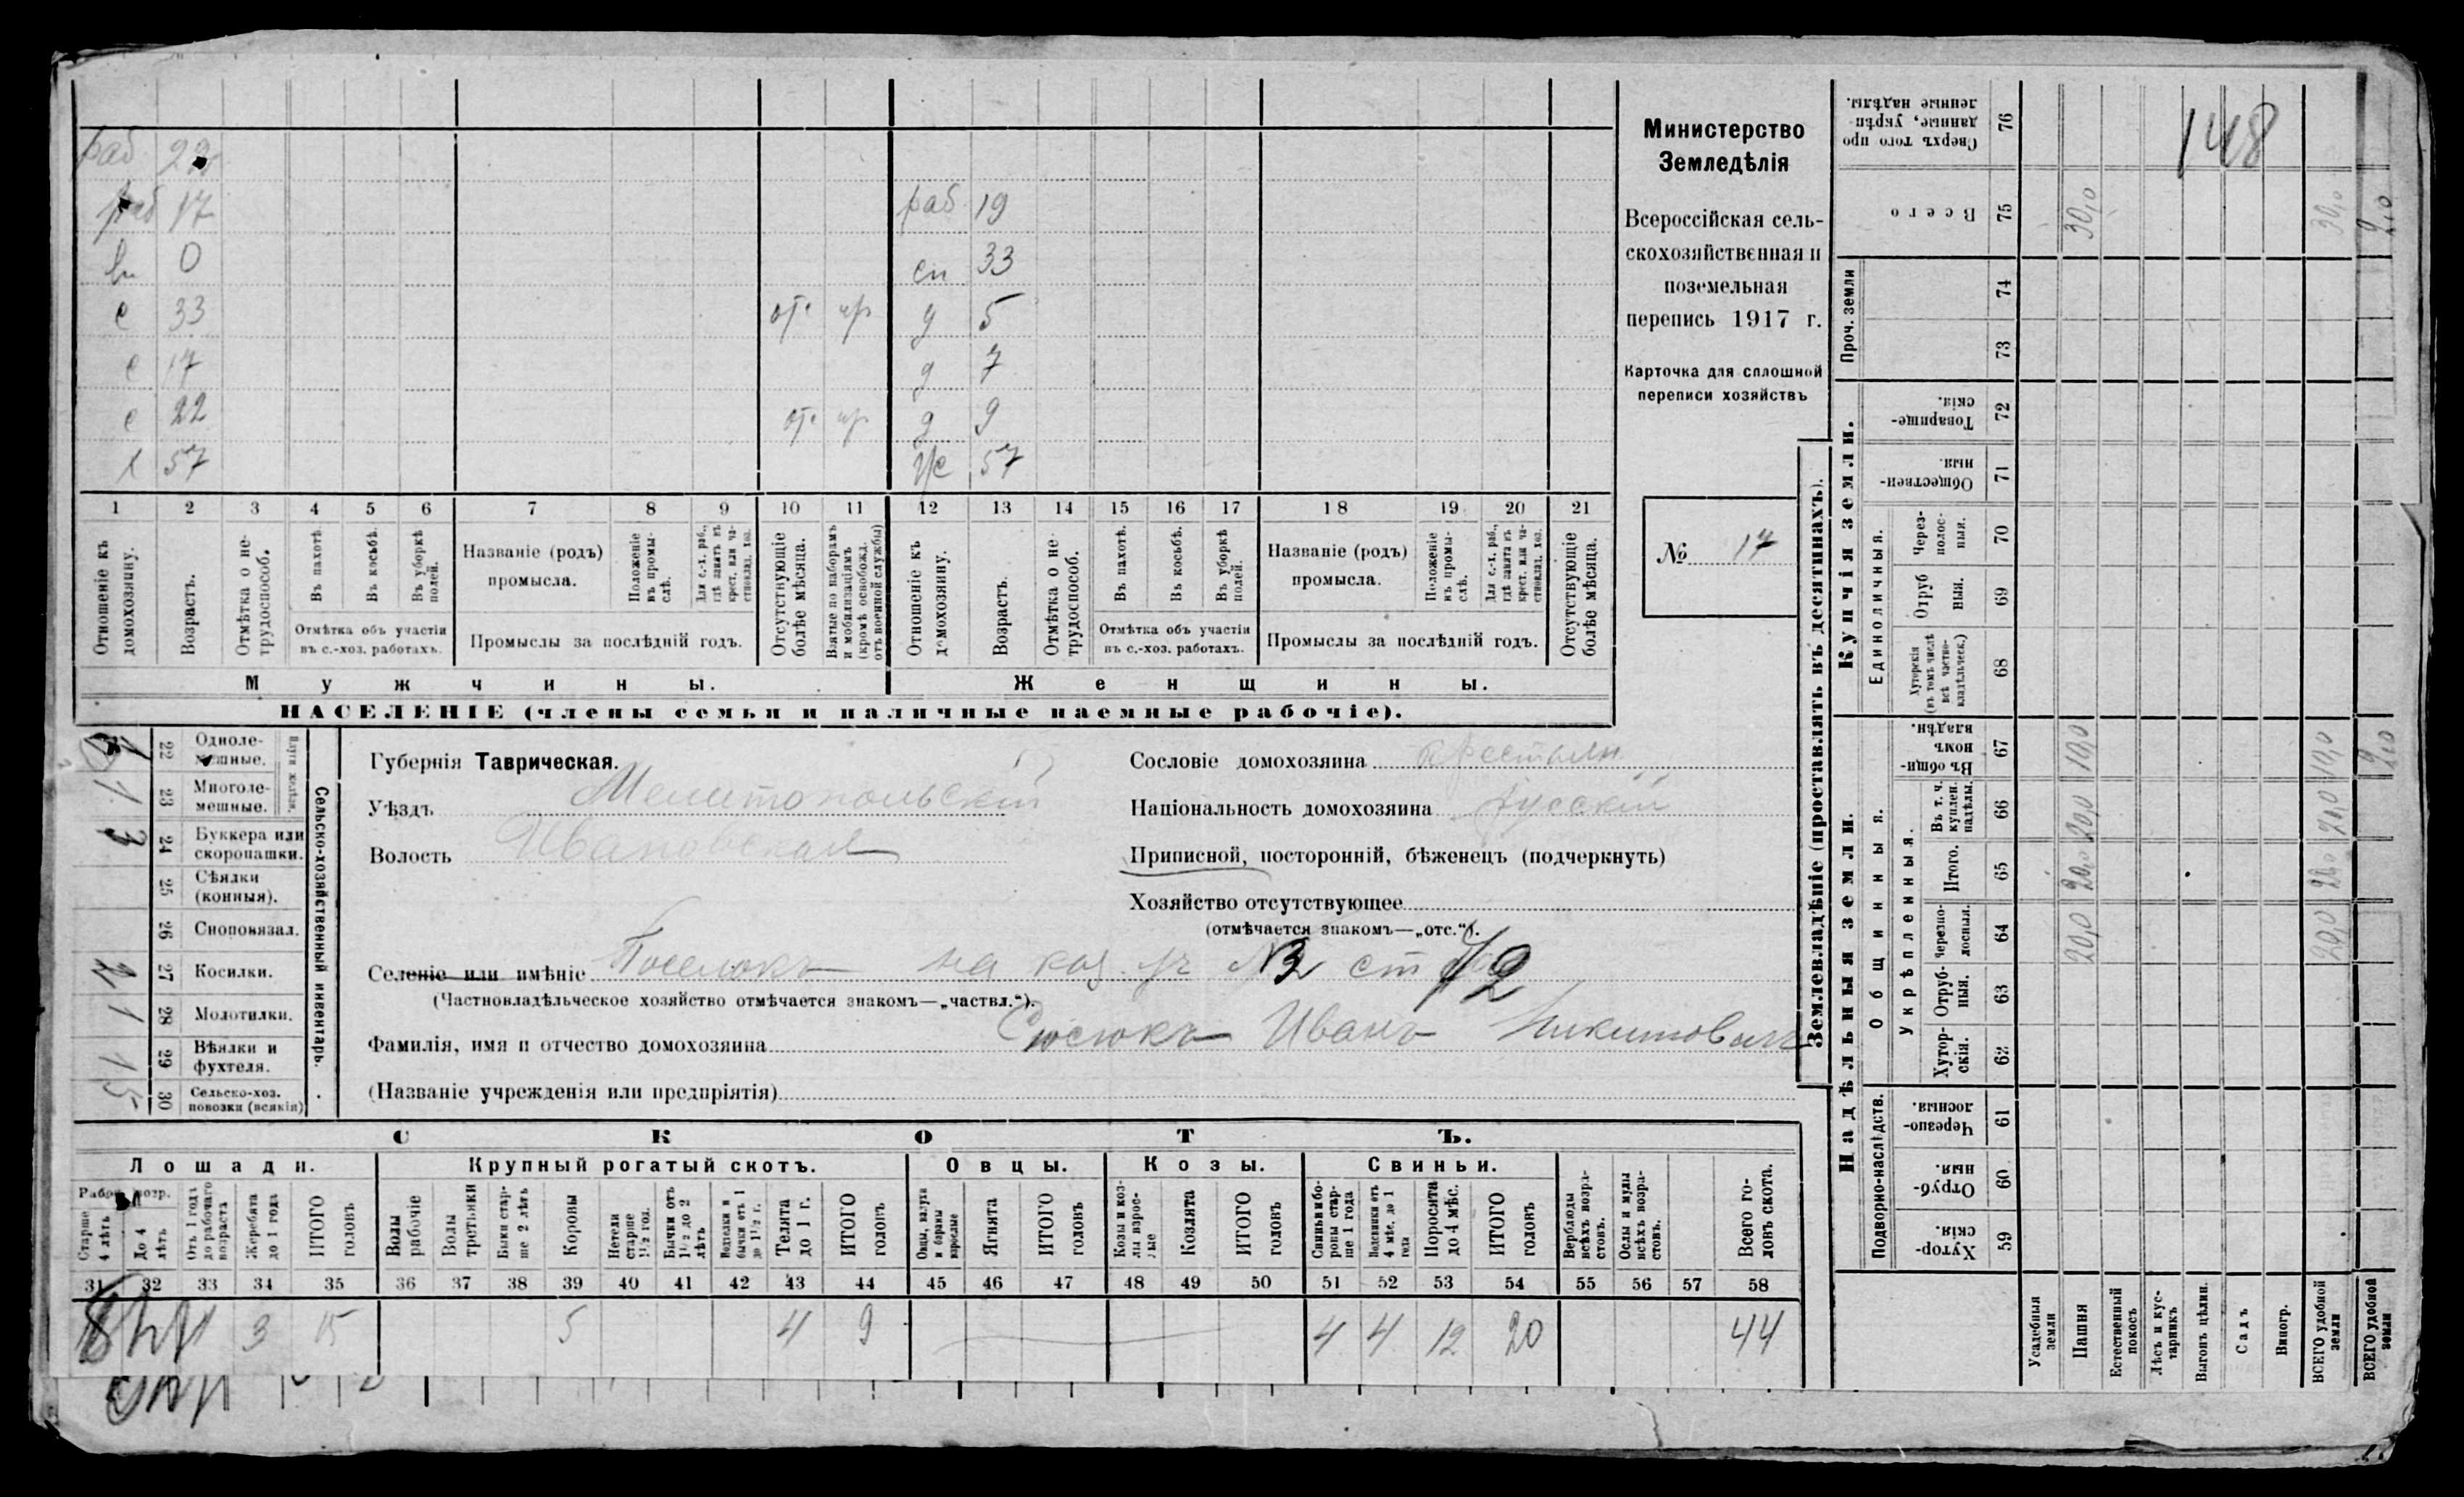 раб 22
раб 17 раб 19
вн 0 сп 33
с 33 от. пр д 5
с 17 д 7
с 22 от. пр д 9
х 57 ж 57
1 2 3 4 5 6 7 8 9 10 11 12 13 14 15 16 17 18 19 20 21
Отношеніе къ домохозяину.
Возрастъ.
Отмѣтка о не-трудоспособ.
Въ пахотѣ.
Въ косьбѣ.
Въ уборкѣ полей.
Отмѣтка объ участіи
въ с.-хоз. работахъ.
Названіе (родъ)
промысла.
Положеніе въ промы-слѣ.
Для с.-х. раб., гдѣ занятъ въ крест. или ча-стновлад. хоз.
Промыслы за послѣдній годъ.
Отсутствующіе болѣе мѣсяца.
Взятые по наборамъ и мобилизаціямъ (кромѣ освобожд. отъ военной службы)
Отношеніе къ домохозяину.
Возрастъ.
Отмѣтка о не-трудоспособ.
Въ пахотѣ.
Въ косьбѣ.
Въ уборкѣ полей.
Отмѣтка объ участіи
въ с.-хоз. работахъ.
Названіе (родъ)
промысла.
Положеніе въ промы-слѣ.
Для с.-х. раб., гдѣ занята въ крест. или ча-стновлад. хоз.
Промыслы за послѣдній годъ.
Отсутствующіе болѣе мѣсяца.
Мужчины. Женщины.
НАСЕЛЕНІЕ (члены семьи и наличные наемные рабочіе).
Министерство
Земледѣлія
Всероссійская сель-
скохозяйственная и
поземельная
перепись 1917 г.
Карточка для сплошной
переписи хозяйствъ
№ 17
Сельско-хозяйственный инвентарь.
Плуги желѣзн.
22 Одноле-
мешные.
1 23 Многоле-
мешные.
3 24 Буккера или
скоропашки.
25 Сѣялки
(конныя).
26 Сноповязал.
2 27 Косилки.
1 28 Молотилки.
1 29 Вѣялки и
фухтеля.
5 30 Сельско-хоз.
повозки (всякія)
Губернія Таврическая.
Уѣздъ Мелитопольскій
Волость Ивановская
Сословіе домохозяина крестьян.
Національность домохозяина русскій
Приписной, посторонній, бѣженецъ (подчеркнуть)
Хозяйство отсутствующее
(отмѣчается знакомъ—„отс.“).
Селеніе или имѣніе Поселокъ на каз. уч №3 ст 2
(Частновладѣльческое хозяйство отмѣчается знакомъ—„частвл.“).
Фамилія, имя и отчество домохозяина Сюсюкъ Иванъ Никитович
(Названіе учрежденія или предпріятія)
СКОТЪ.
Лошади. Крупный рогатый скотъ. Овцы. Козы. Свиньи.
Рабоч. возр.
Старше 4 лѣтъ
До 4 лѣтъ
Отъ 1 года до рабочаго возраста
Жеребята до 1 года
ИТОГО головъ
Волы рабочіе
Волы третьяки
Быки стар-ше 2 лѣтъ
Коровы
Нетели старше 1½ год.
Бычки отъ 1½ до 2 лѣтъ
Подтелки и бычки отъ 1 до 1½ г.
Телята до 1 г.
ИТОГО головъ
Овцы, валухи и бараны взрослые
Ягнята
ИТОГО головъ
Козы и коз-лы взрос-лые
Козлята
ИТОГО головъ
Свиньи и бо-ровы стар-ше 1 года
Подсвинки отъ 4 мѣс. до 1 года
Поросята до 4 мѣс.
ИТОГО головъ
Верблюды всѣхъ возра-стовъ.
Ослы и мулы всѣхъ возра-стовъ.
Всего го-ловъ скота.
31 32 33 34 35 36 37 38 39 40 41 42 43 44 45 46 47 48 49 50 51 52 53 54 55 56 57 58
8 4 3 15 5 4 9 4 4 12 20 44
Землевладѣніе (проставлять въ десятинахъ).
Купчія земли.
Надѣльныя земли.
Сверхъ того про данные, укрѣп-ленные надѣлы. 76
148
Всего 75 30,0 30,0 2,0
Проч. земли 74
73
Товарище-скія. 72
Обществен-ныя. 71
Единоличныя.
Через-полос-ныя. 70
Отруб ныя. 69
Хуторскія (въ томъ числѣ всѣ частно-владѣльческ.) 68
Общинныя.
Въ общи-номъ владѣн. 67 10,0 10,0 2,0
Укрѣпленныя.
Въ т. ч. куплен. надѣлы. 66 20,0 20,0
Итого. 65 20,0 20,0
Черезпо-лосныя. 64 20,0 20,0
Отруб-ныя. 63
Хутор-скія. 62
Подворно-наслѣдств.
Черезпо-лосныя. 61
Отруб-ныя. 60
Хутор-скія. 59
Усадебныя земли
Пашня
Естественный покосъ
Лѣсъ и кус-тарникъ
Выгонъ цѣлин.
Садъ
Виногр.
ВСЕГО удобной земли
ВСЕГО удобной земли